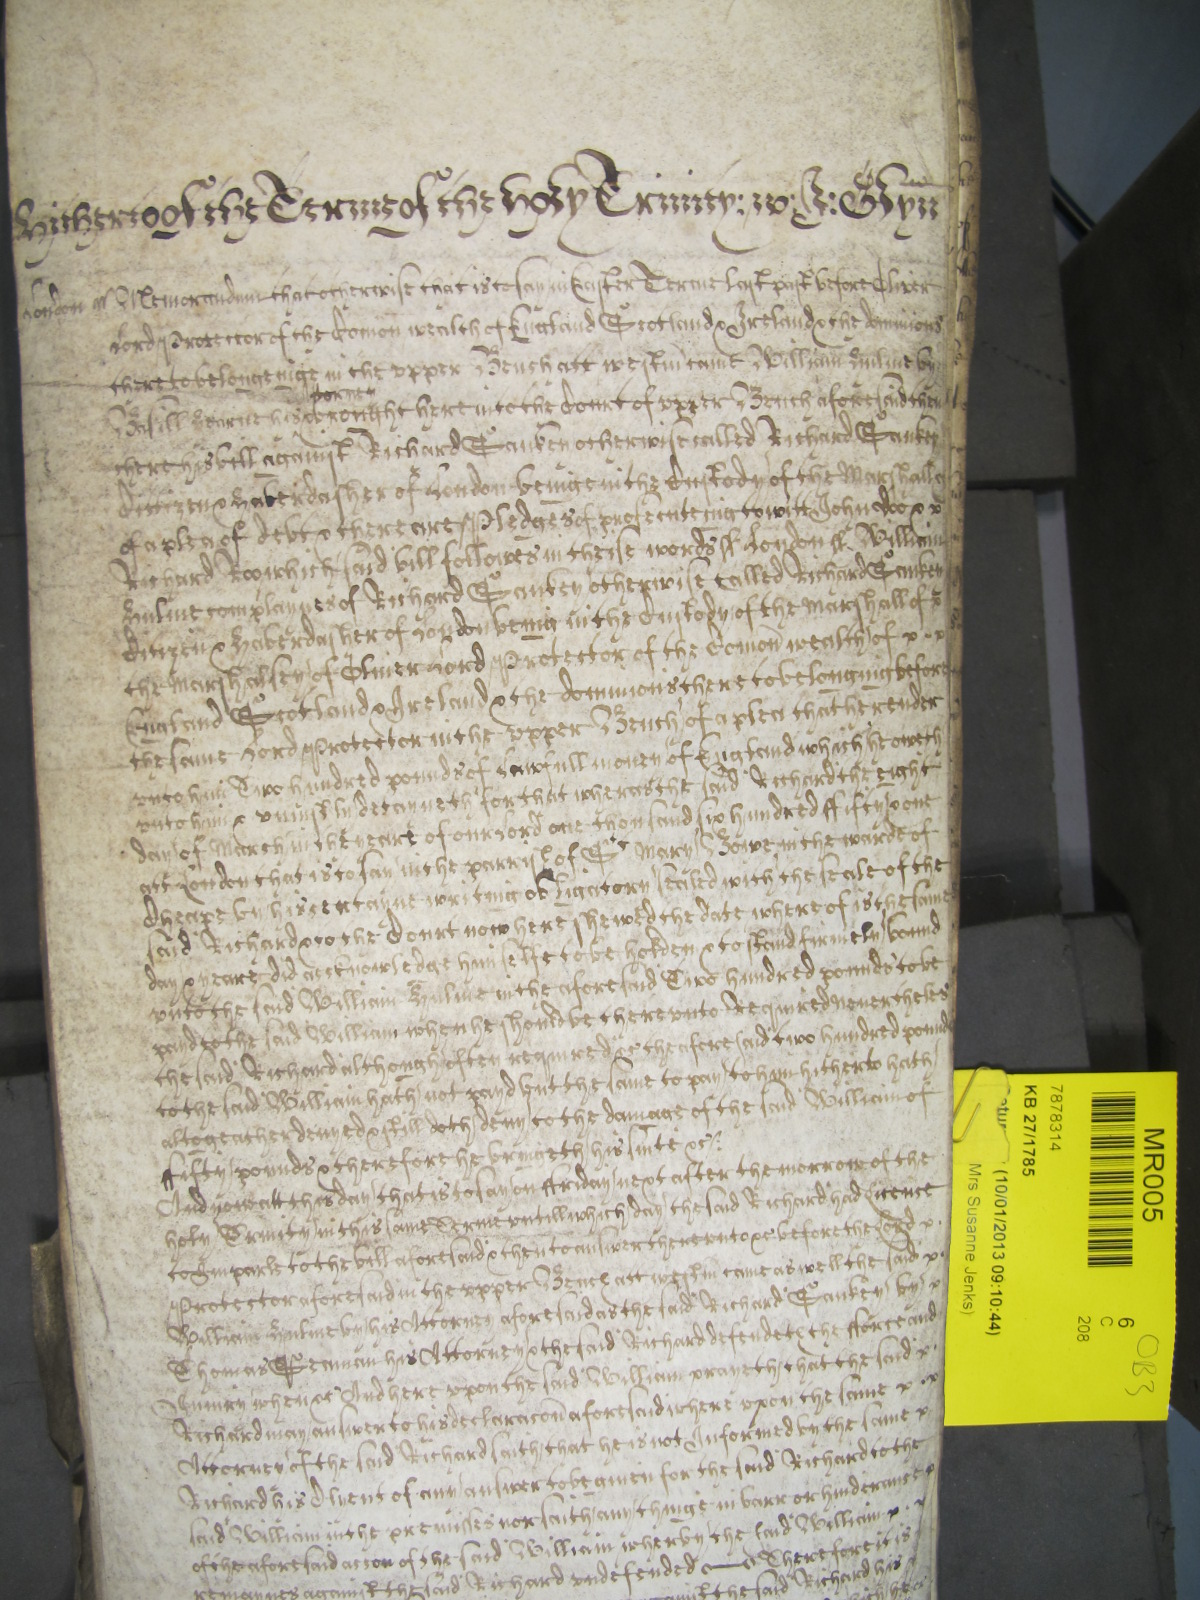 Hitherto of the Terme of the holy Trinity: w: J: Glyn
London ss Memorandum that otherwise that is to say in Easter Terme last past before Oliver
Lord Protector of the Comon wealth of England Scotland & Ireland & the dominions
thereto belongeinge in the vpper Bench att westm came William Hulme by
Basill Hearne his Attorney brought here into the Court of vpper Bench aforesaid then
there his bill against Richard Sankey otherwise called Richard Sankey
Cittizen & Haberdasher of London beinge in the Custody of the Marshall &c
of a plea of debt & there are Pledges of prosecuteing to witt John doo &
Richard Roo which said bill followes in theise words ss London ss William
Hulme complaynes of Richard Sankey otherwise called Richard Sankey
Citizen & Haberdasher of London being in the Custody of the Marshall of
the Marshalsey of Oliver Lord Protector of the Comon wealth of
England Scotland & Ireland & the dominions thereto belonging before
the same Lord Protector in the vpper Bench of a plea that he render
vnto him Two hundred pounds of lawfull money of England which he oweth
vnto him & vniustly detayneth for that wheras the said Richard the eight
day of March in the yeare of our lord one thousand six hundred ffifty & one
att London that is to say in the parrish of St Mary Bowe in the warde of
Cheape by his certayne writing obligatory sealed with the seale of the
said Richard & to the Court now here shewed the date where of is the same
day & yeare did acknowledge himselfe to be holden & to stand firmely bound
vnto the said William Hulme in the aforesaid Two hundred pounds to be
payd to the said William when he should be therevnto Required neverthelesse
the said Richard although often required &c the aforesaid two hundred pounds
to the said William hath not payd but the same to pay to him hitherto hath
altogeather denyed & still doth deny to the damage of the said William of
ffifty pounds & therefore he bringeth his suite &c
And now att this day that is to say on ffriday next after the morrow of the
holy Trinity in this same Terme vntill which day the said Richard had licence
to Imparle to the bill aforesaid & then to answer therevnto &c before the Lord
Protector aforesaid in the vpper Bench att westm came as well the said
William Hulme by his Attorney aforesaid as the said Richard Sankey by
Thomas his Attorney & the said Richard defendeth the fforce and
Iniury when &c And here vpon the said William prayeth that the said
Richard may answer to his declaracon aforesaid where vpon the same
Attorney of the said Richard saith that he is not Informed by the same
Richard his Clyent of any answer to be giuen for the said Richard to the
said William in the premises nor saith any thinge in barr or hinderance
of the aforesaid accon of the said William wherby the said William
remaynes against the said Richard vndefended Therefore it is
against the said Richard his
MR005
6
C
208
OB3
7878314
KB 27/1785
(10/01/2013 09:10:44)
Mrs Susanne Jenks)